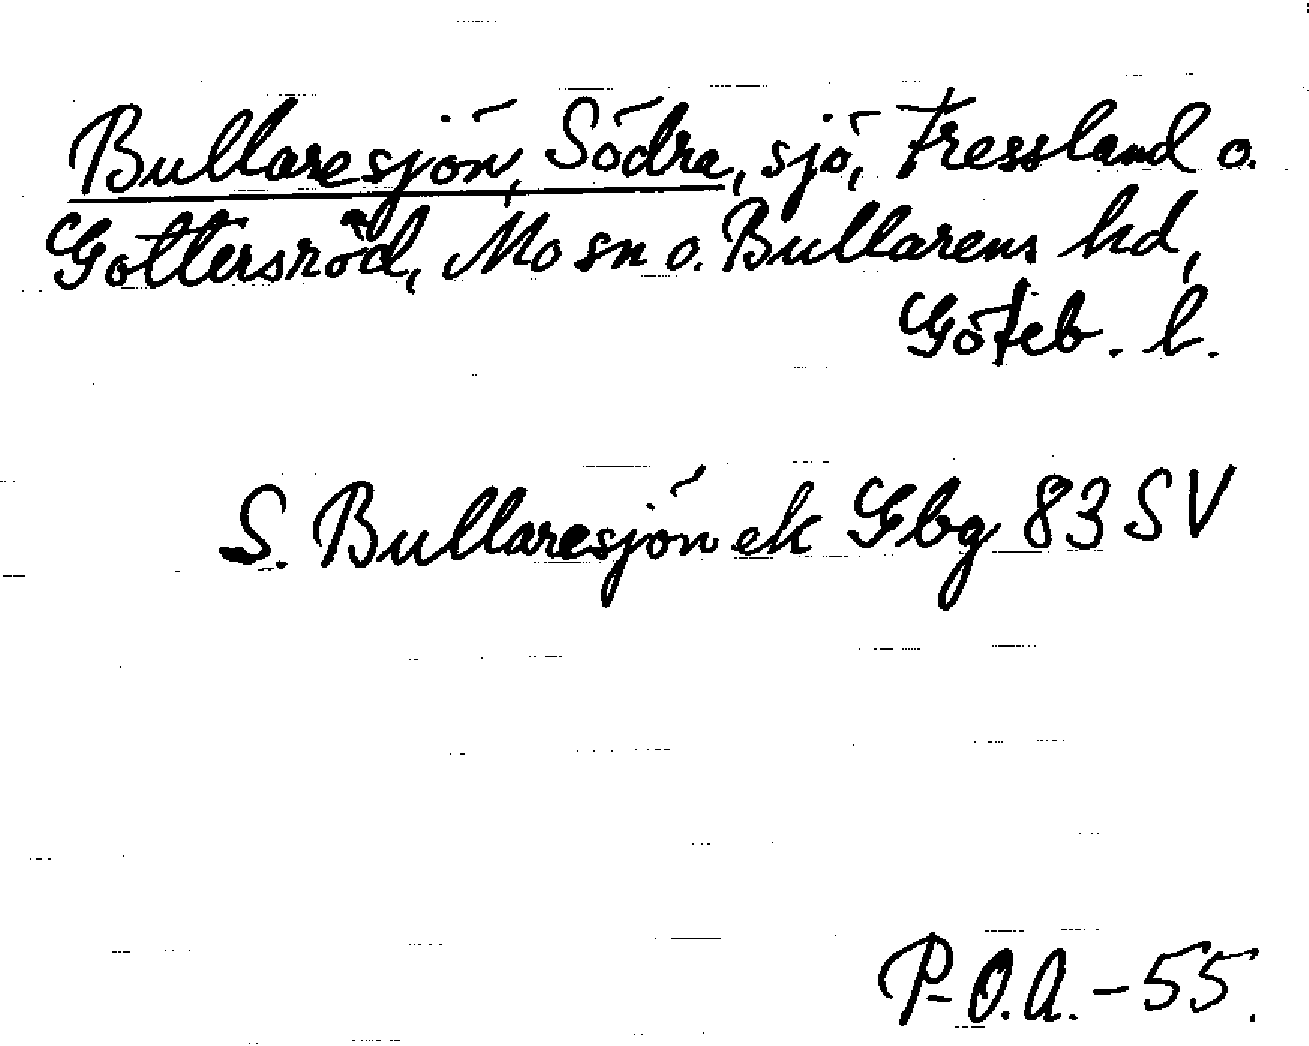 Bullaresjön, Södra, sjö, Fressland o.
Gottersröd, Mo sn o. Bullarens hd,
Göteb. l.
S. Bullaresjön ek Gbg 83 SV
P-O.A.-55.